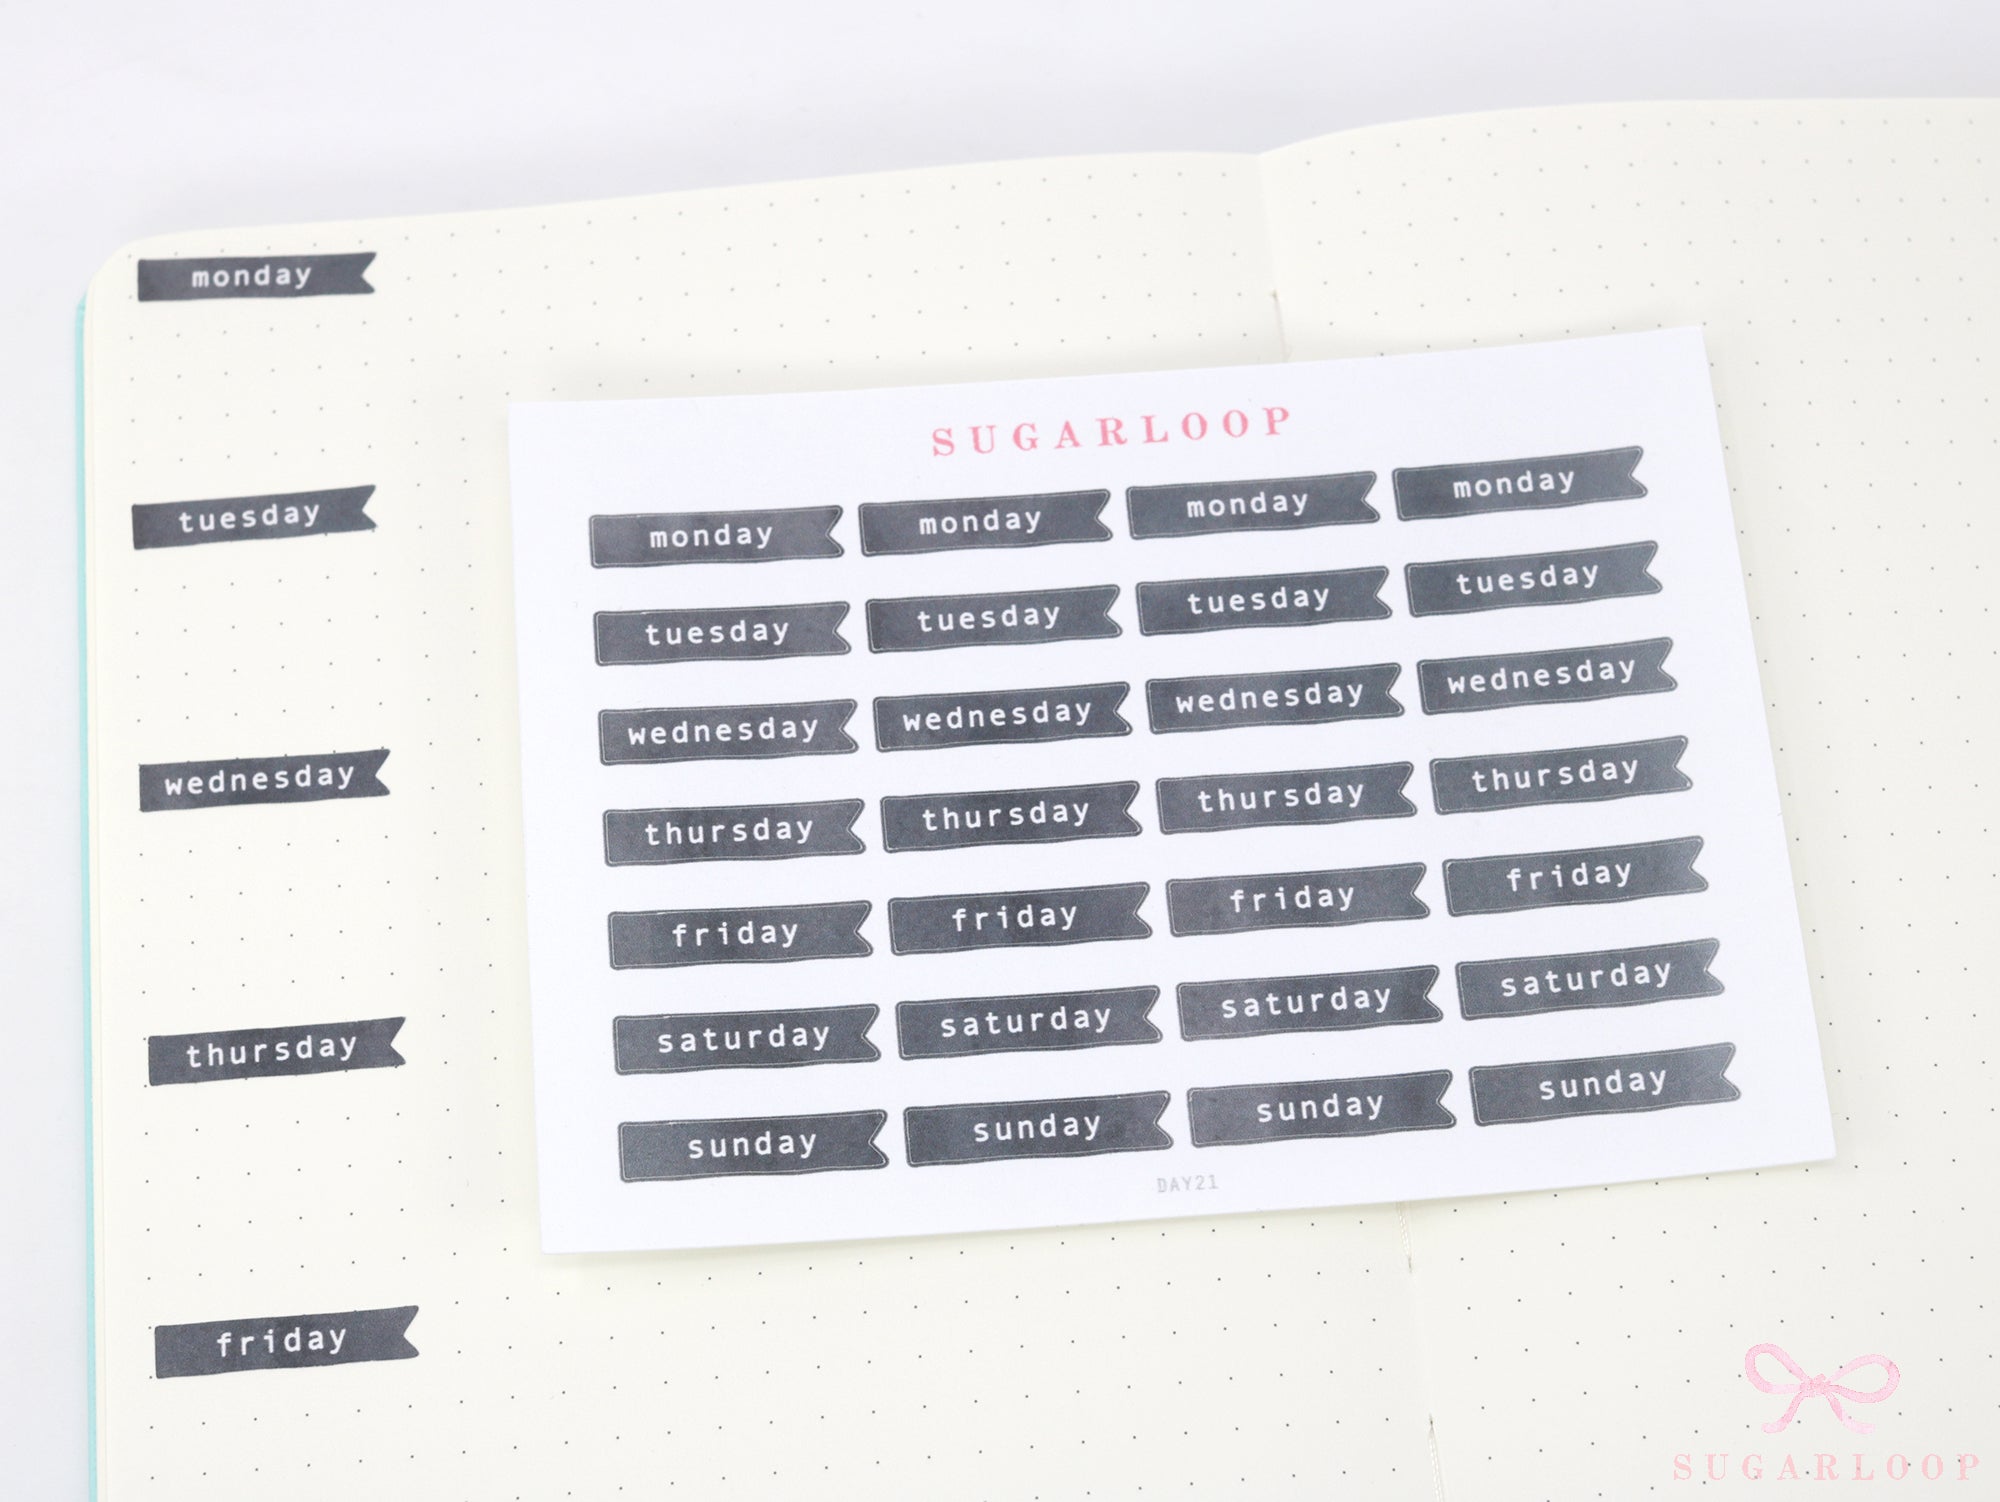 monday
tuesday
wednesday
thursday
friday
SUGARLOOP
monday monday monday monday
tuesday tuesday tuesday tuesday
wednesday wednesday wednesday wednesday
thursday thursday thursday thursday
friday friday friday friday
saturday saturday saturday saturday
sunday sunday sunday sunday
DAY21
SUGARLOOP